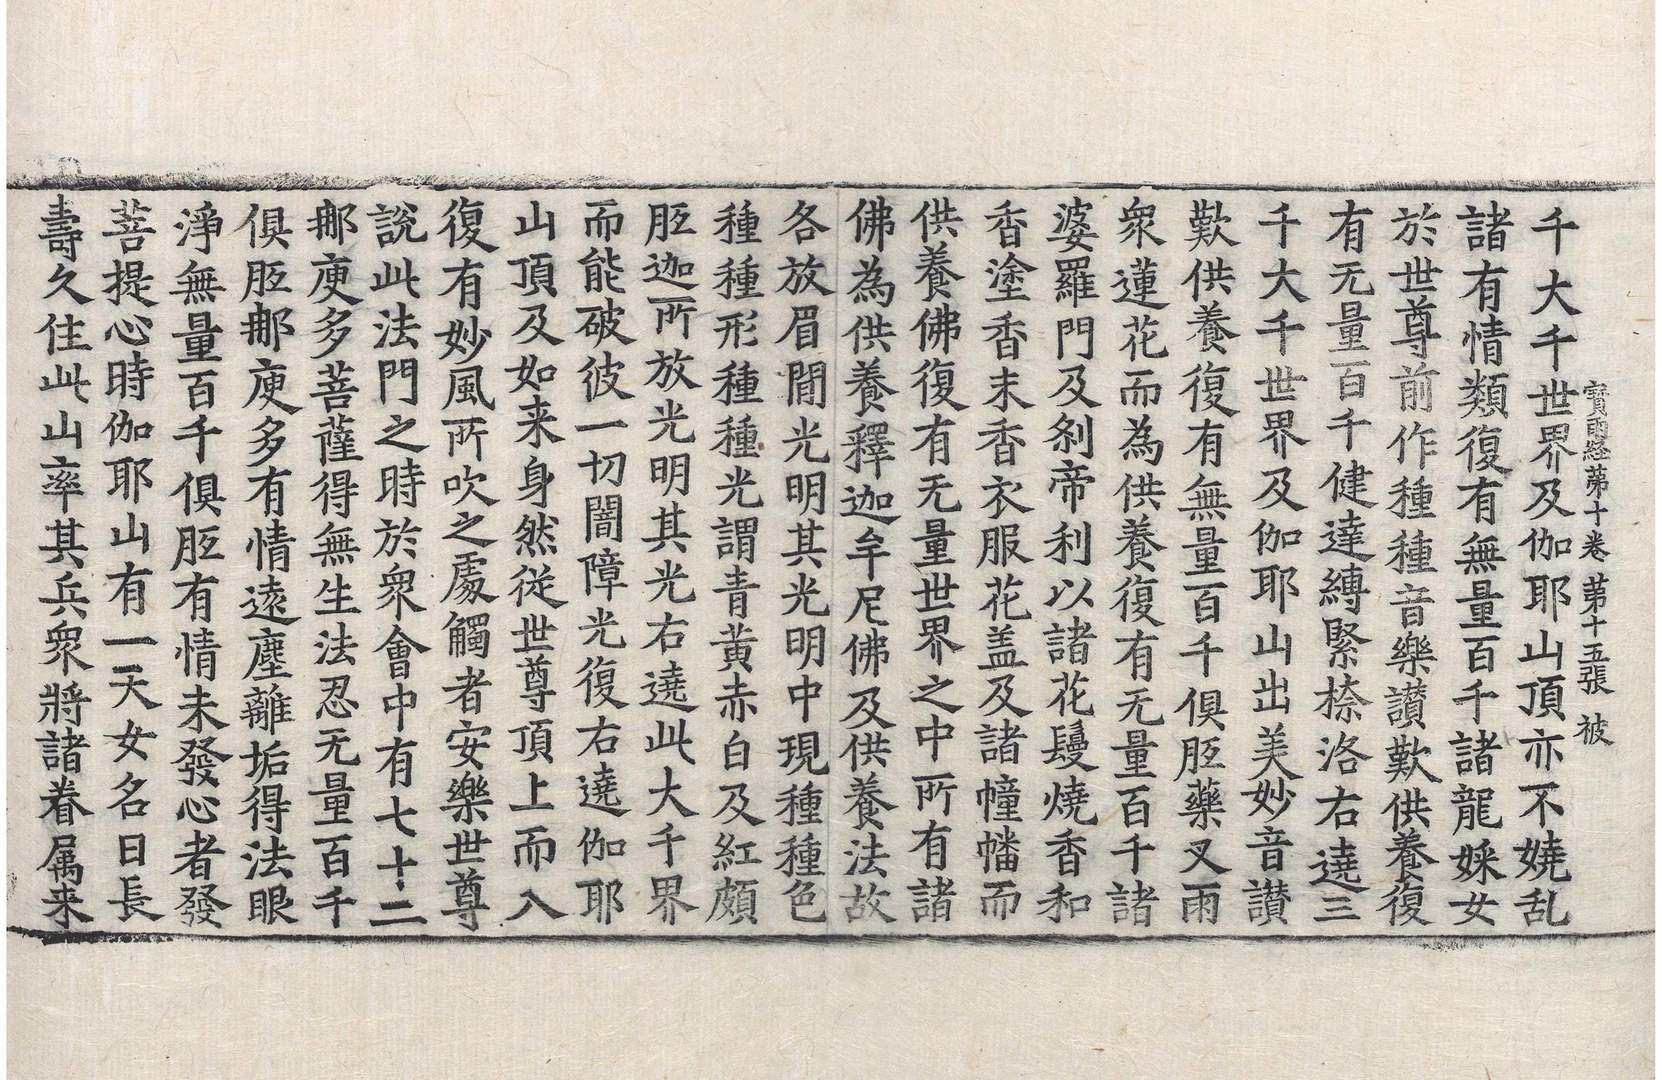 寳雨経第十卷 第十五張 被
千大千世界及伽耶山頂亦不嬈乱
諸有情類復有無量百千諸龍婇女
於世尊前作種種音樂讃歎供養復
有无量百千健達縛緊捺洛右遶三
千大千世界及伽耶山出美妙音讃
歎供養復有無量百千俱胝藥叉雨
衆蓮花而為供養復有无量百千諸
婆羅門及刹帝利以諸花鬘燒香和
香塗香末香衣服花盖及諸幢幡而
供養佛復有无量世界之中所有諸
佛為供養釋迦牟尼佛及供養法故
各放眉間光明其光明中現種種色
種種形種種光謂青黃赤白及紅頗
胝迦所放光明其光右遶此大千界
而能破彼一切闇障光復右遶伽耶
山頂及如来身然從世尊頂上而入
復有妙風所吹之處觸者安樂世尊
說此法門之時於衆會中有七十二
那庾多菩薩得無生法忍无量百千
俱胝那庾多有情遠塵離垢得法眼
淨無量百千俱胝有情未發心者發
菩提心時伽耶山有一天女名曰長
壽久住此山率其兵衆將諸眷属来